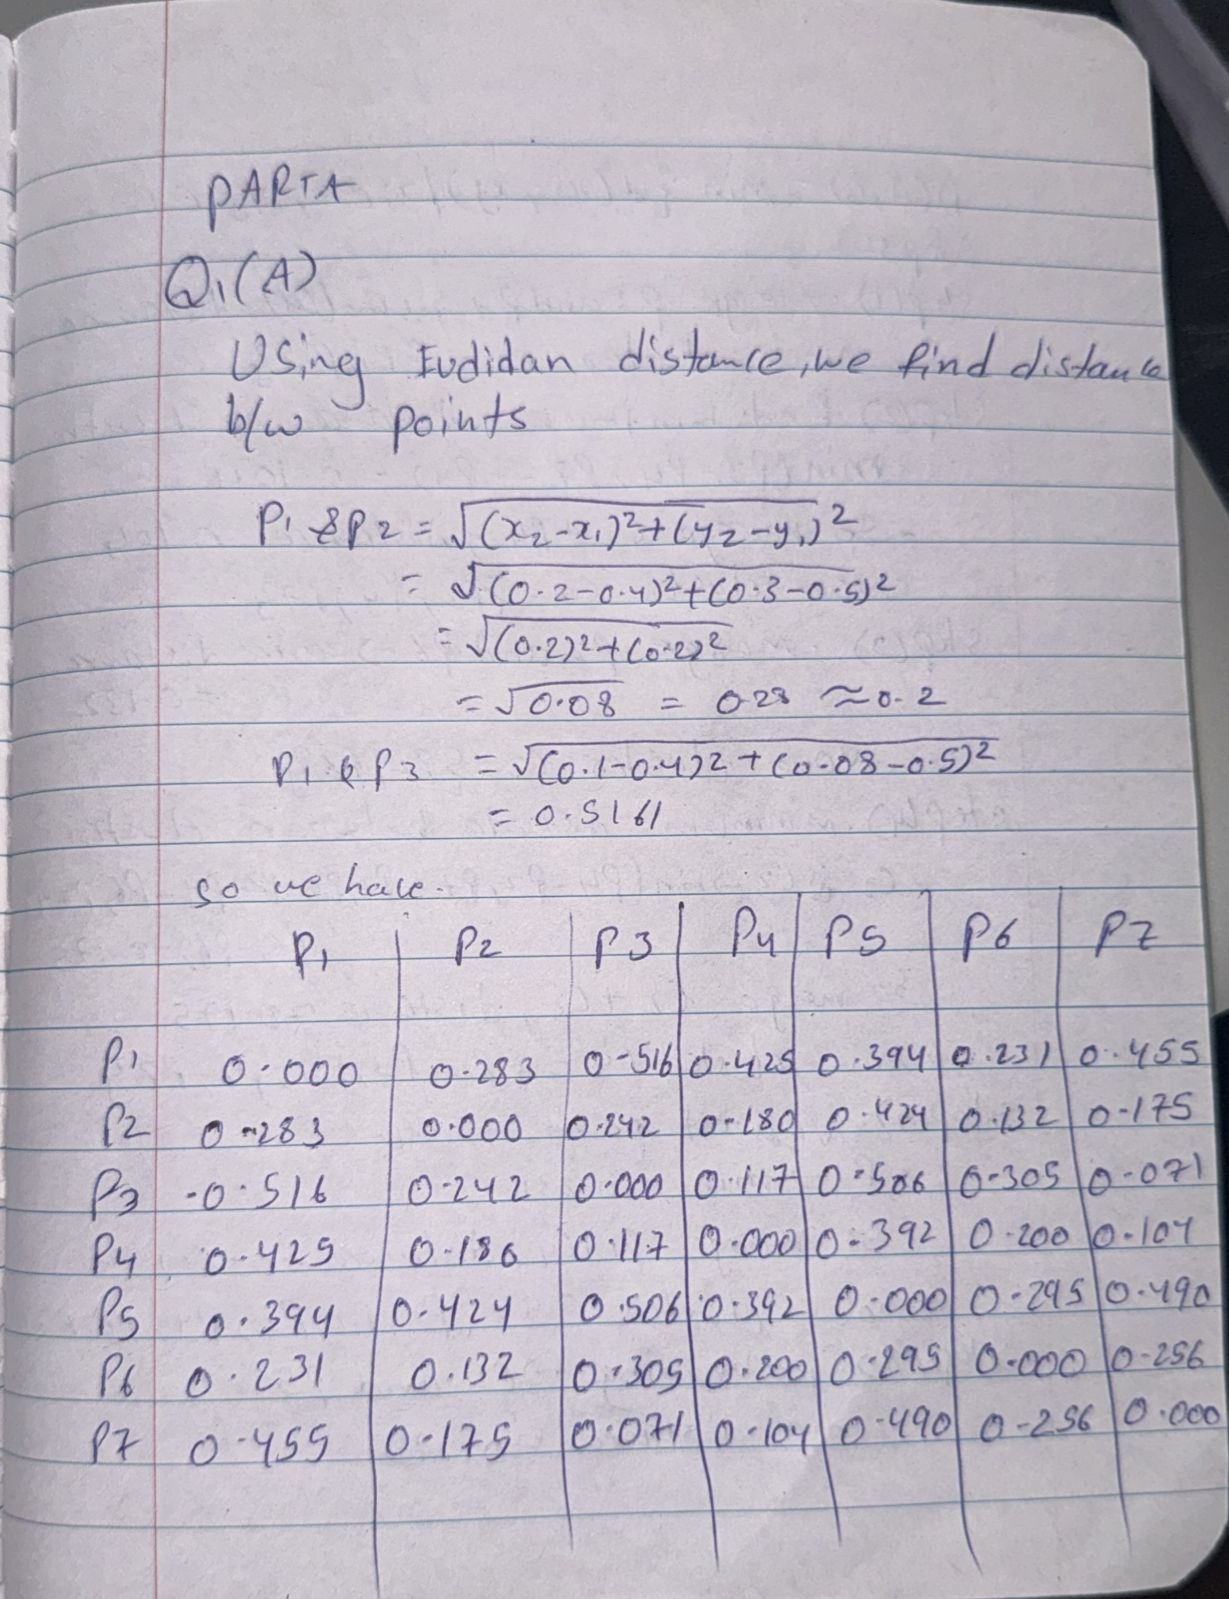 PARTA
Q1(A)
Using Eudidan distance, we find distance
b/w points
P1 & P2 = √(x2-x1)²+(y2-y1)²
= √(0.2-0.4)²+(0.3-0.5)²
= √(0.2)²+(0.2)²
= √0.08 = 0.28 ≈ 0.2
P1 & P3 = √(0.1-0.4)2+(0.08-0.5)²
= 0.5161
so we have.
P1 P2 P3 P4 P5 P6 P7
P1 0.000 0.283 0.516 0.425 0.394 0.231 0.455
P2 0.283 0.000 0.242 0.180 0.424 0.132 0.175
P3 0.516 0.242 0.000 0.117 0.506 0.305 0.071
P4 0.425 0.186 0.117 0.000 0.392 0.200 0.104
P5 0.394 0.424 0.506 0.392 0.000 0.295 0.490
P6 0.231 0.132 0.305 0.200 0.295 0.000 0.256
P7 0.455 0.175 0.071 0.104 0.490 0.256 0.000